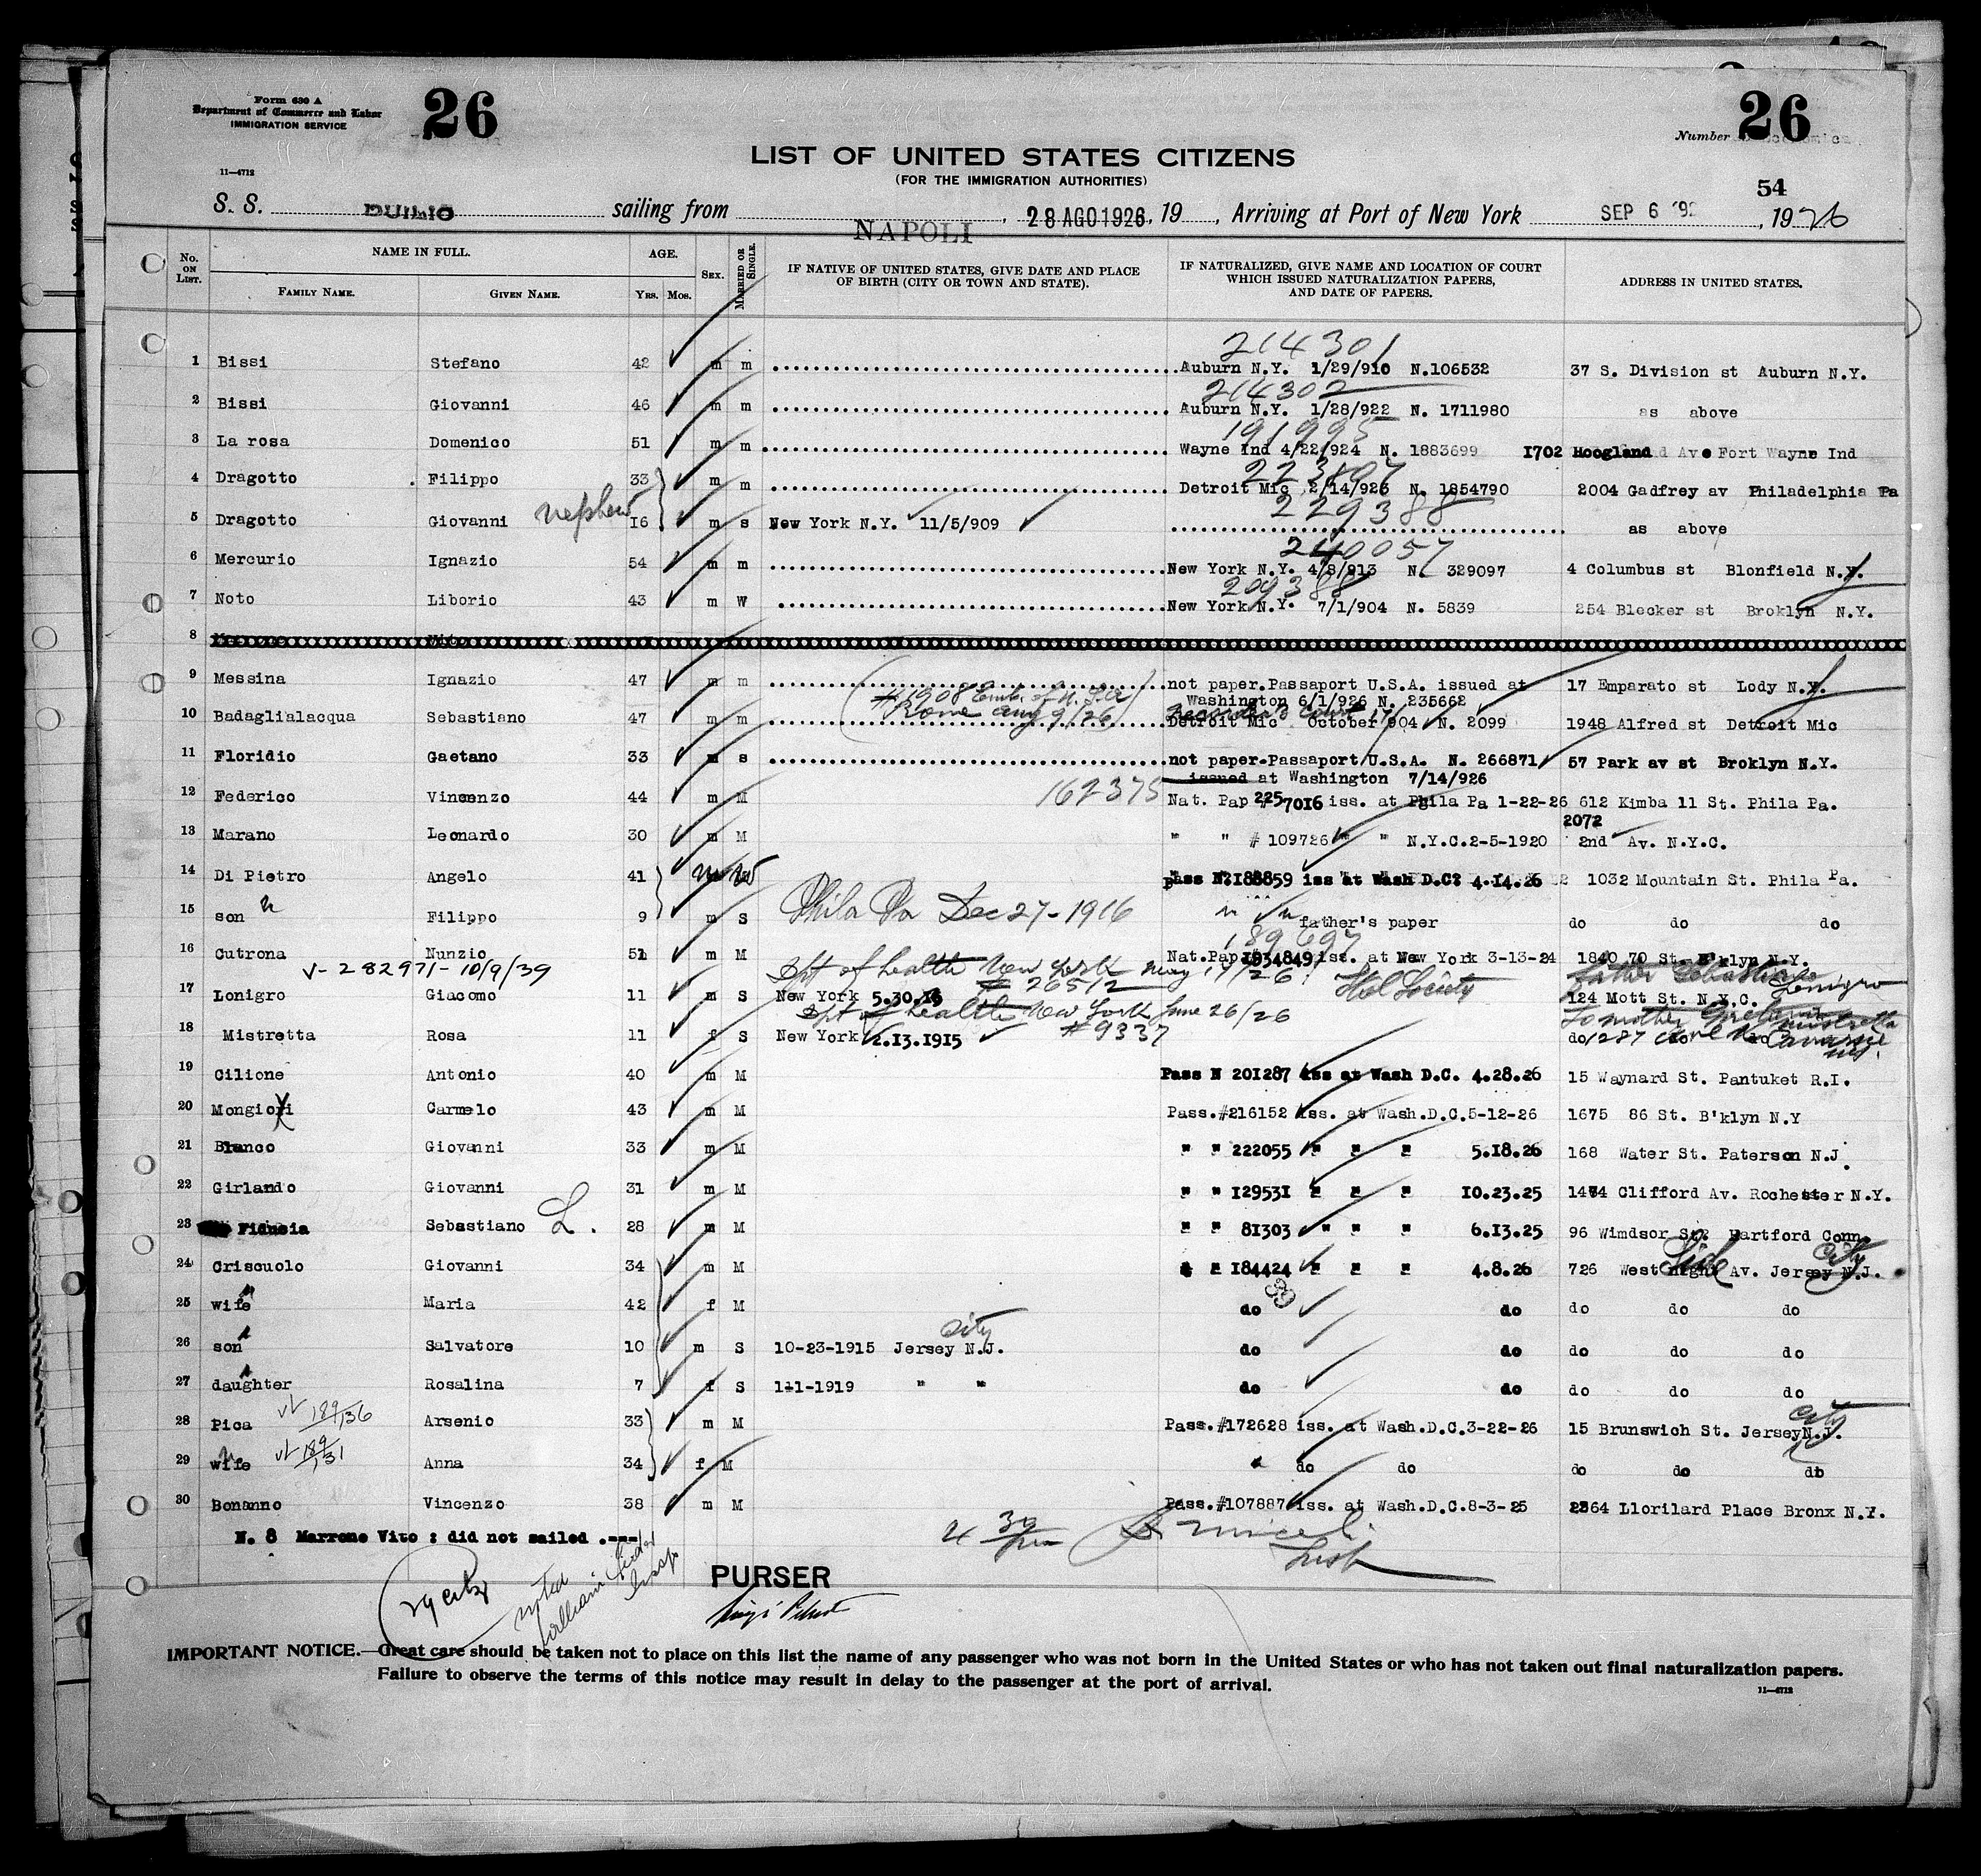 Form 630 A
Department of Commerce and Labor
IMMIGRATION SERVICE
26
26
Number
11—4712
LIST OF UNITED STATES CITIZENS
(FOR THE IMMIGRATION AUTHORITIES)
54
S. S. DUILIO sailing from NAPOLI, 28 AGO 1926, 19 , Arriving at Port of New York SEP 6 '92 , 1926
No. ON LIST. NAME IN FULL. AGE. SEX. MARRIED OR SINGLE. IF NATIVE OF UNITED STATES, GIVE DATE AND PLACE OF BIRTH (CITY OR TOWN AND STATE). IF NATURALIZED, GIVE NAME AND LOCATION OF COURT WHICH ISSUED NATURALIZATION PAPERS, AND DATE OF PAPERS. ADDRESS IN UNITED STATES.
FAMILY NAME. GIVEN NAME. YRS. MOS.
214301
1 Bissi Stefano 42 m m Auburn N.Y. 1/29/910 N.106532 37 S. Division st Auburn N.Y.
214302
2 Bissi Giovanni 46 m m Auburn N.Y. 1/28/922 N. 1711980 as above
191995
3 La rosa Domenico 51 m m Wayne Ind 4/22/924 N. 1883699 1702 Hoogland Ave Fort Wayne Ind
4 Dragotto Filippo 33 m m Detroit Mic 2/14/926 N. 1854790 2004 Gadfrey av Philadelphia Pa
229388
5 Dragotto Giovanni nephew 16 m s New York N.Y. 11/5/909 as above
240057
6 Mercurio Ignazio 54 m m New York N.Y. 4/8/913 N. 329097 4 Columbus st Blonfield N.y.
209388
7 Noto Liborio 43 m W New York N.Y. 7/1/904 N. 5839 254 Blecker st Broklyn N.Y.
8
9 Messina Ignazio 47 m m not paper.Passaport U.S.A. issued at 17 Emparato st Lody N.y.
Washington 6/1/926 N. 235662
#1908 Emb. of U.S.A.
Rome Aug 9/26
10 Badaglialacqua Sebastiano 47 m m Detroit Mic October 904 N. 2099 1948 Alfred st Detroit Mic
11 Floridio Gaetano 33 m s not paper-Passaport U.S.A. N. 266871 57 Park av st Broklyn N.Y.
issued at Washington 7/14/926
12 Federico Vincenzo 44 m M 162375 Nat. Pap # 2257016 iss. at Phila Pa 1-22-26 612 Kimba 11 St. Phila Pa.
2072
13 Marano Leonardo 30 m M " " # 109726 " " N.Y.C.2-5-1920 2nd Av. N.Y.C.
14 Di Pietro Angelo 41 m W Pass N.188859 iss at Wash D.C. 4.14.26 1032 Mountain St. Phila Pa.
15 son " Filippo 9 m S Phila Pa Dec 27-1916 " " father's paper do do do
189697
16 Cutrona Nunzio 51 m M Nat.Pap 1934849 iss. at New York 3-13-24 1840 70 St. B'klyn N.Y.
V-282971-10/9/39
Dpt of health New York May 19/26
# 26512
17 Lonigro Giacomo 11 m S New York 5.30.15 124 Mott St. N.Y.C.
Dpt of health New York June 26/26
# 9337
18 Mistretta Rosa 11 f S New York 2.13.1915 do
19 Cilione Antonio 40 m M Pass N 201287 iss at Wash D.C. 4.28.26 15 Waynard St. Pantuket R.I.
20 Mongiovi Carmelo 43 m M Pass.#216152 iss. at Wash.D.C.5-12-26 1675 86 St. B'klyn N.Y
21 Bianco Giovanni 33 m M " " 222055 " " " 5.18.26 168 Water St. Paterson N.J.
22 Girlando Giovanni 31 m M " " 129531 " " " 10.23.25 1474 Clifford Av. Rochester N.Y.
23 Fiducia Sebastiano L. 28 m M " " 81303 " " " 6.13.25 96 Wimdsor St. Hartford Conn.
24 Criscuolo Giovanni 34 m M " " 184424 " " " 4.8.26 726 West Side Av. Jersey City N.J.
25 wife " Maria 42 f M do do do do do
26 son " Salvatore 10 m S 10-23-1915 Jersey City N.J. do do do do do
27 daughter " Rosalina 7 f S 1-1-1919 " " do do do do do
28 Pica Arsenio 33 m M Pass.#172628 iss. at Wash.D.C.3-22-26 15 Brunswich St. Jersey City N.J.
29 wife " Anna 34 f M " do do do do do
30 Bonanno Vincenzo 38 m M Pass.#107887 iss. at Wash.D.C.8-3-25 2364 Llorilard Place Bronx N.Y.
N. 8 Marrone Vito : did not sailed .---
PURSER
29 citz
noted
William
Insp
Insp
IMPORTANT NOTICE.—Great care should be taken not to place on this list the name of any passenger who was not born in the United States or who has not taken out final naturalization papers.
Failure to observe the terms of this notice may result in delay to the passenger at the port of arrival.
11—4712